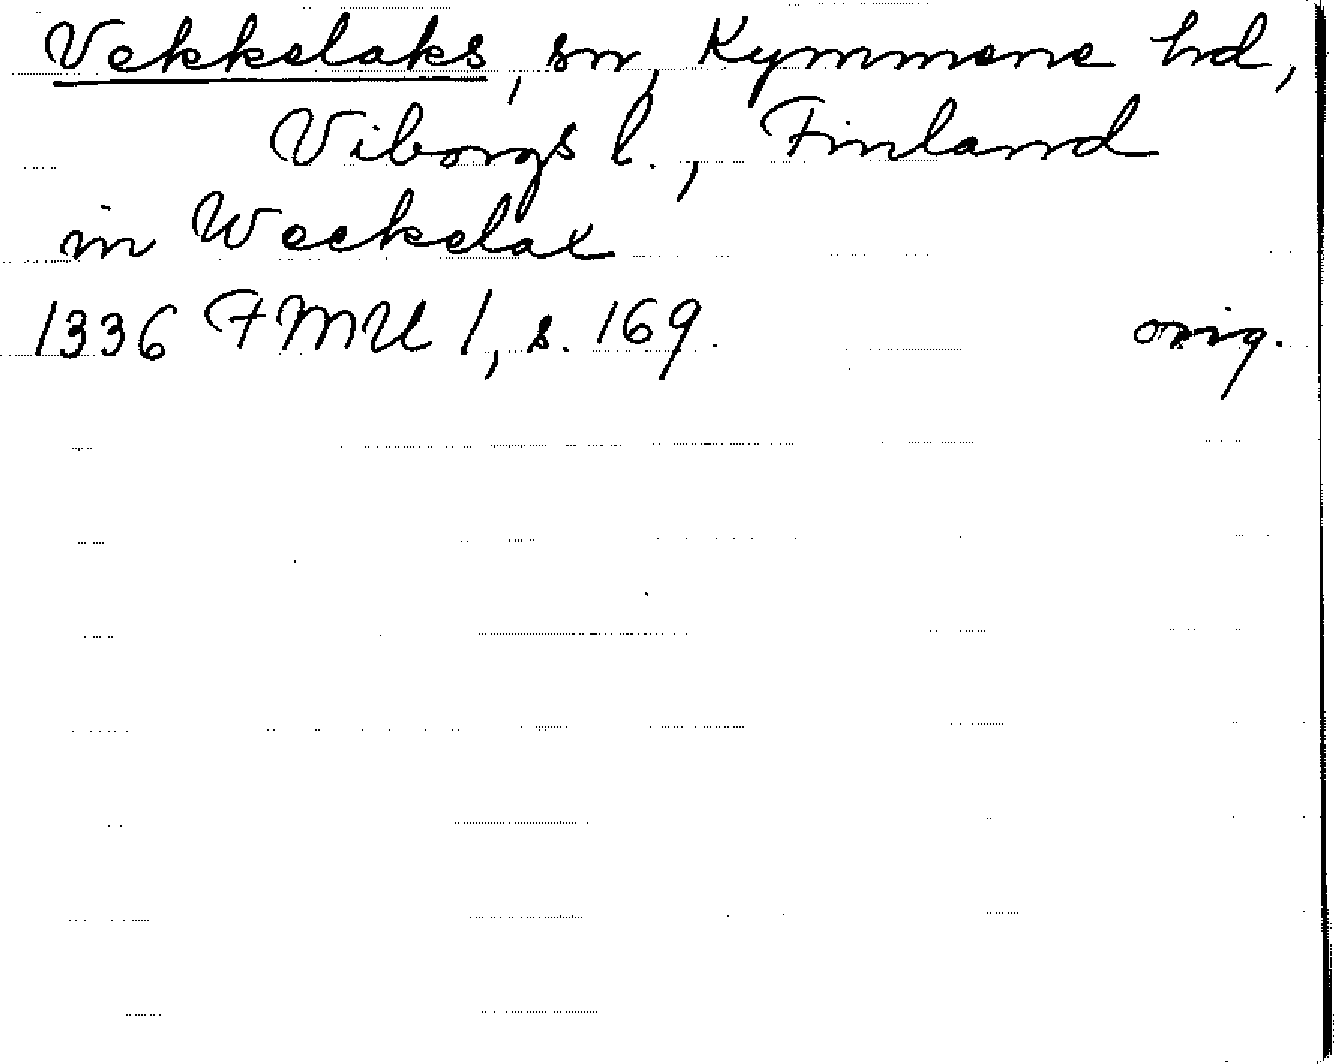 Vekkelaks, sn, Kymmene hd,
Viborgs l., Finland
in Weckelax
1336 FMU 1, s. 169. orig.